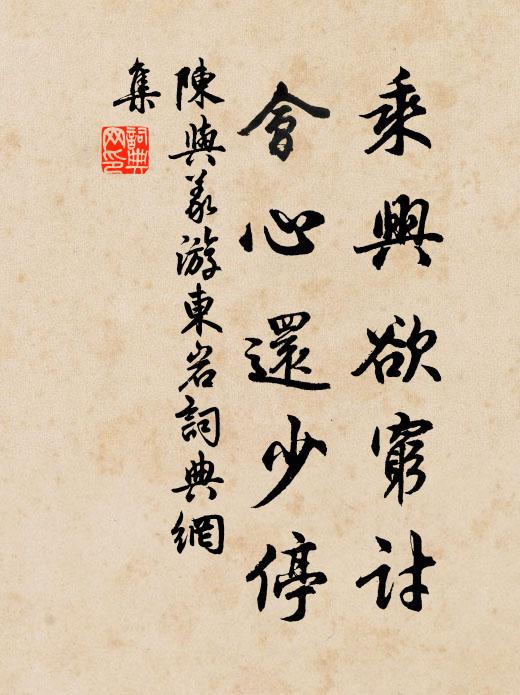 乘興欲窮討
會心還少停
陳與義游東岩詞典網
集
詞典
网印